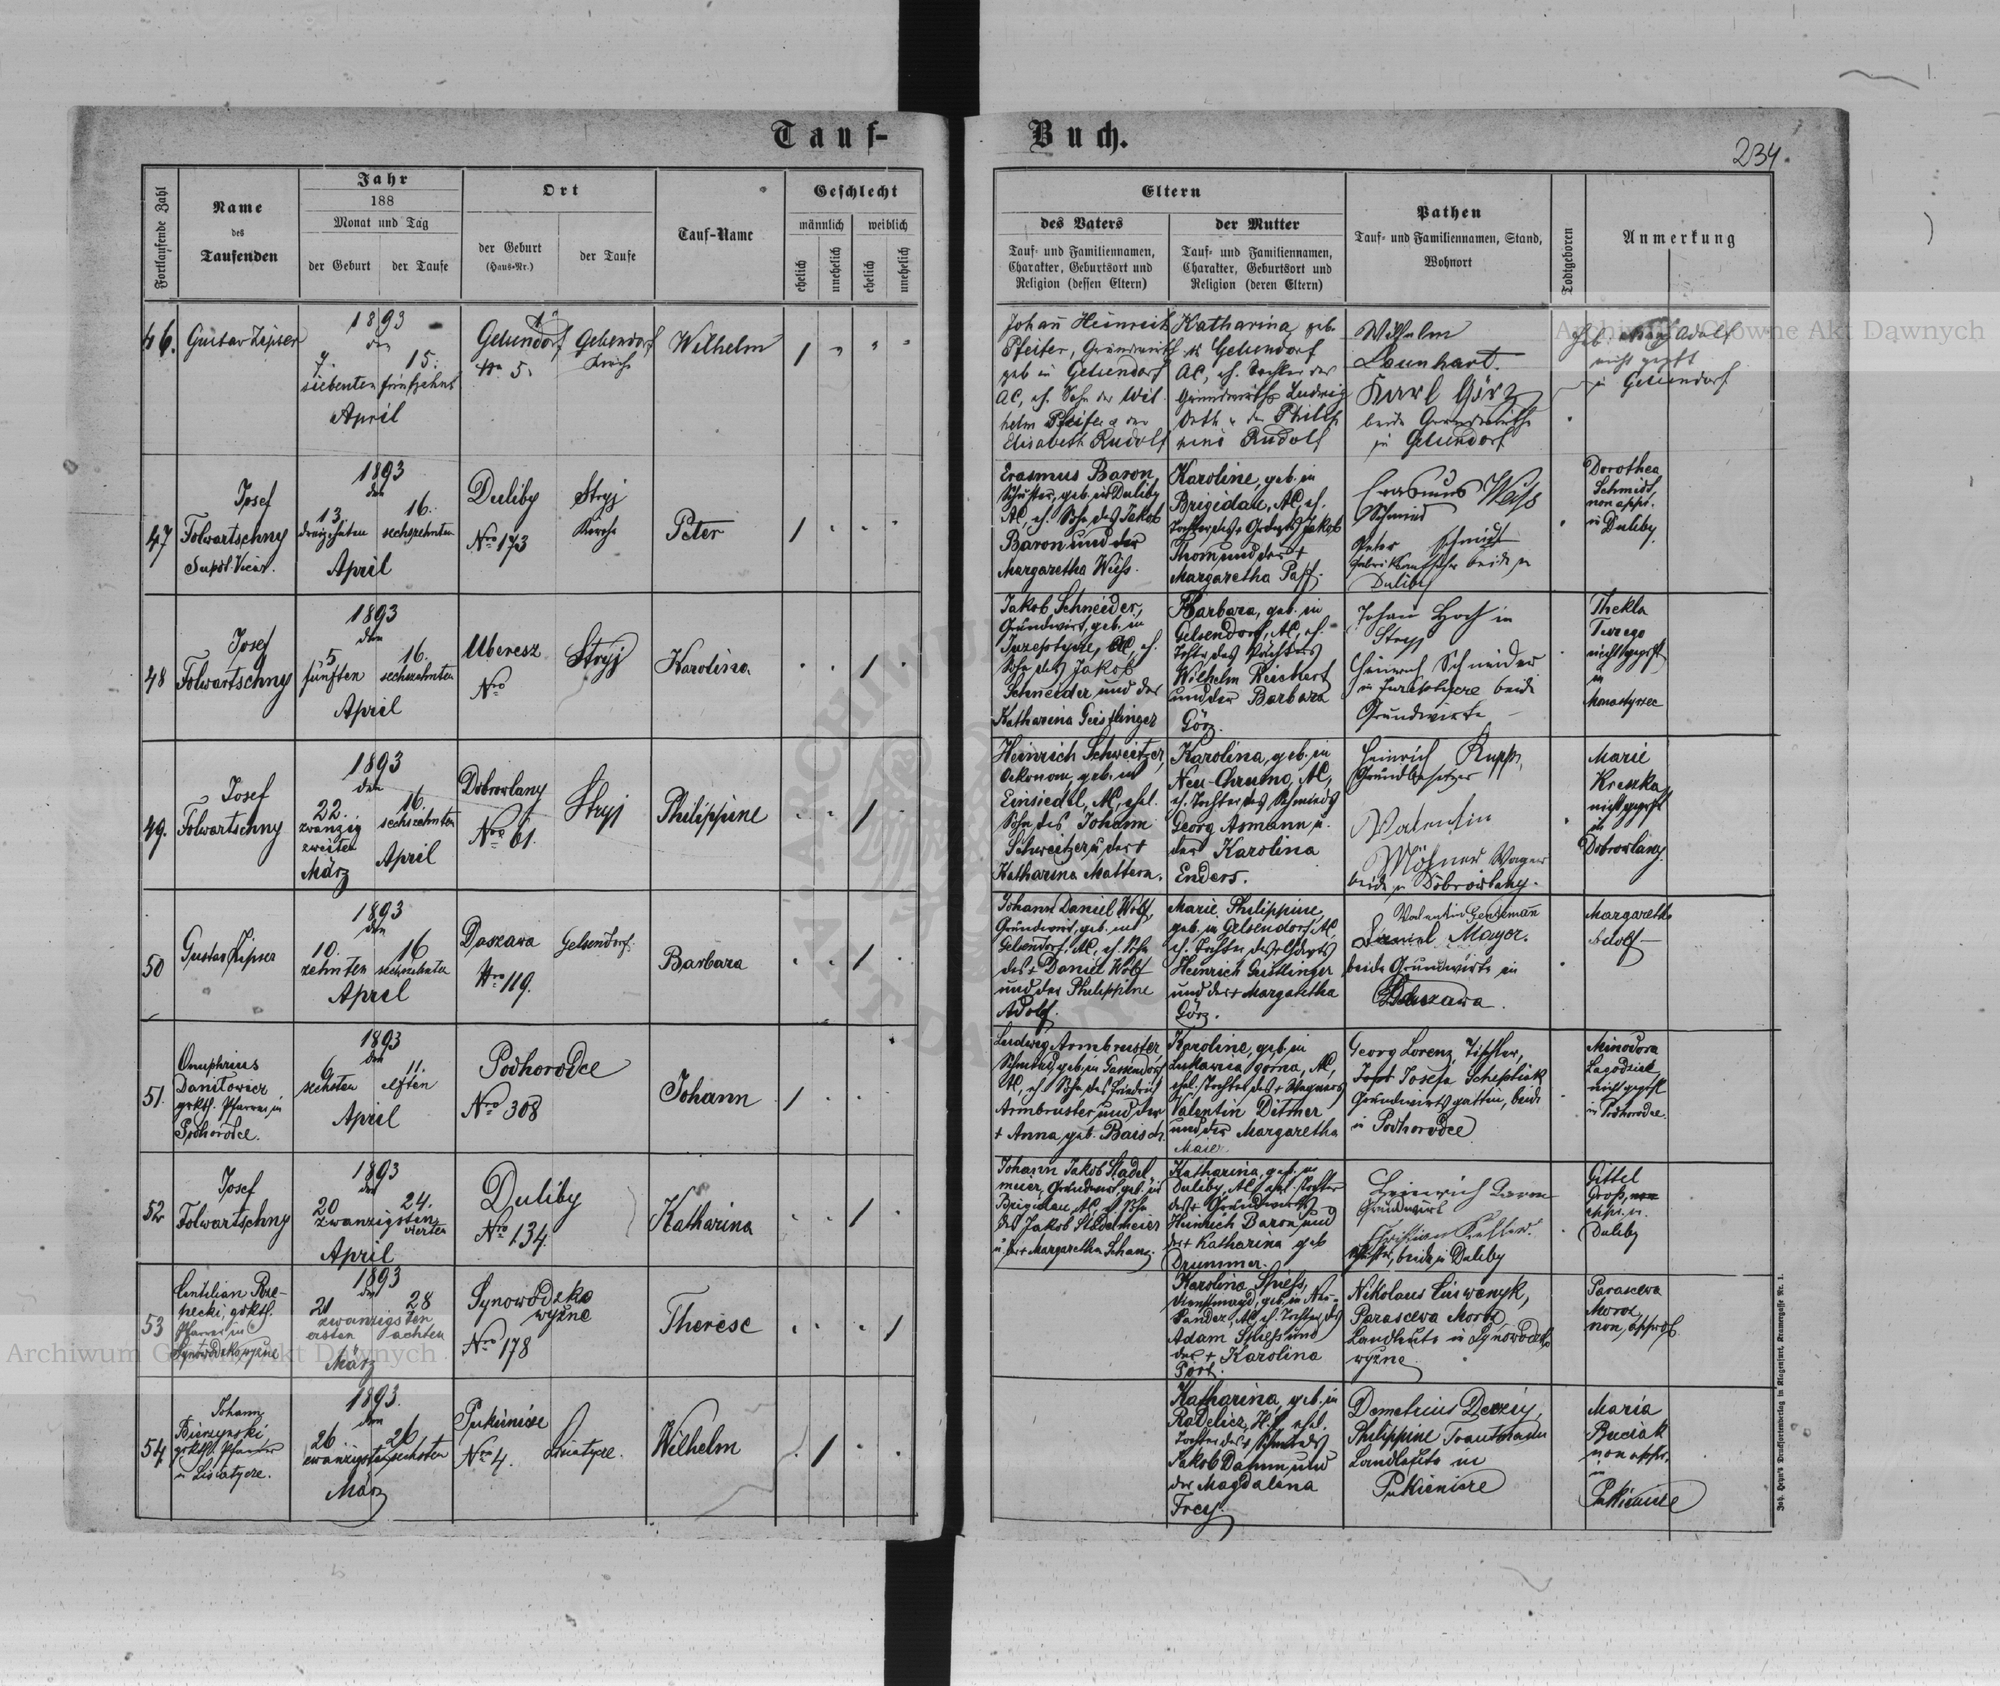 Tauf-
Buch.
234.
Fortlaufende Zahl
Name
des
Taufenden
Jahr
188
Monat und Tag
der Geburt
der Taufe
Ort
der Geburt
(Haus-Nr.)
der Taufe
Tauf-Name
Geschlecht
männlich
weiblich
ehelich
unehelich
ehelich
unehelich
Eltern
des Vaters
Tauf- und Familiennamen,
Charakter, Geburtsort und
Religion (dessen Eltern)
der Mutter
Tauf- und Familiennamen,
Charakter, Geburtsort und
Religion (deren Eltern)
Pathen
Tauf- und Familiennamen, Stand,
Wohnort
Todtgeboren
Anmerkung
46.
Gustav Zipser
1893
den
7. 15.
siebenten fünfzehnt
April
Gelsendorf
Nr. 5.
Gelsendorf
Kirche
Wilhelm
Johann Heinrich
Pfeifer, Grundwirth
geb in Gelsendorf
AC, eh. Sohn der Wil-
helm Pfeifer u der
Elisabeth Rudolf
Katharina geb.
in Gelsendorf
AC, eh. Tochter des
Grundwirths Ludwig
Orth u der Philip
pine Rudolf
Wilhelm
Leonhart
Karl Görz
beide Grundwirthe
in Gelsendorf
Adolf
nicht gepft
in Gelsendorf
47
Josef
Folwartschny
Supdt. Vicar.
1893
den
13. 16.
dreizehnten sechszehnten
April
Duliby
Nro 173
Stryj
Kirche
Peter
Erasmus Baron
Schuster, geb. in Duliby
AC, eh. Sohn des Jakob
Baron und der
Margaretha Weiss.
Karoline, geb. in
Brigidau, AC, eh.
Tochter des + Grdwts Jakob
Thom und der +
Margaretha Paff.
Erasmus Weiss
Schmied
Peter Schmidt
beide in
Duliby
Dorothea
Schmidt,
non appr.
in Duliby.
48
Josef
Folwartschny
1893
den
5 16.
fünften sechzehnten
April
Uberesz
Nro
Stryj
Karolina
Jakob Schneider,
Grundwirt, geb. in
Josefstyre, AC, eh.
Sohn des Jakob
Schneider und der
Katharina Geistlinger
Barbara, geb. in
Gelsendorf, AC, eh.
Tochter des Pächters
Wilhelm Reichert
und der Barbara
Görz.
Johann Hoch in
Stryj
Heinrich Schneider
beide
Grundwirte
Thekla
nicht gegrft
in
Monastyrzec
49.
Josef
Folwartschny
1893
den
22. 16.
zwanzig sechszehnten
zweiten
März April
Dobrowlany
Nro 61.
Stryj
Philippine
Heinrich Schweitzer,
Oekonom, geb. in
Einsiedel, AC, ehel.
Sohn des Johann
Schweitzer u. der +
Katharina Mattern.
Karolina, geb. in
Neu-Chrusno, AC,
eh. Tochter des Schmieds
Georg Asmann u.
der Karolina
Enders.
Heinrich Rupp,
Grundbesitzer
Valentin
Mösner Wagner
beide in Dobrowlany.
Marie
Kreszka
nicht gegrft
in
Dobrowlany.
50
Gustav Zipser
1893
den
10. 16
zehnten sechszehnten
April
Daszawa
Nro 119.
Gelsendorf.
Barbara
Johann Daniel Wolf,
Grundwirt, geb. in
Gelsendorf, AC, eh. Sohn
des + Daniel Wolf
und der Philippine
Adolf.
Marie Philippine
geb. in Gelsendorf, AC,
eh. Tochter des Grdwts
Heinrich Geistlinger
und der + Margaretha
Görz.
Valentin Gentzmann
Daniel Mayer.
beide Grundwirte in
Daszawa.
Margaretha
Adolf
51.
Onuphrius
Danilowicz
grkth. Pfarrer in
Podhorodce.
1893
den
6 11.
sechsten elften
April
Podhorodce
Nro 308
Johann
Ludwig Armbruster,
Schmied, geb. in Gassendorf
AC, eh. Sohn des Friedrich
Armbruster und der
+ Anna, geb. Baisch.
Karoline, geb. in
Lukawica gorna, AC,
ehel. Tochter des + Wagners
Valentin Ditmer
und der Margaretha
Maier.
Georg Lorenz, Tischler,
Josefa Scheftick
Grundwirtsgatten, beide
in Podhorodce
Minodora
Lagodziel
nicht gegrft
in Podhorodce.
52
Josef
Folwartschny
1893
den
20 24.
zwanzigsten
vierten
April
Duliby
Nro 134.
Katharina
Johann Jakob Stadel-
meier, Grundwirt, geb. in
Brigidau, AC, eh. Sohn
des Jakob Stadelmeier
u. der + Margaretha Schanz.
Katharina, geb. in
Duliby, AC, ehel. Tochter
des + Grundwirts
Heinrich Baron und
der + Katharina geb
Drummer.
Heinrich Baron
Grundwirt
Christian Kehler.
beide in Duliby
Gittel
Gross, non
appr. in
Duliby
53
pecki, grkth.
Pfarrer in
Synowodzko wyzne
1893
den
21 28
zwanzigsten
ersten achten
März
Synowodzko
wyzne
Nro 178
Therese
Karolina Spiess,
Dienstmagd, geb. in
AC, eh. Tochter des
Adam Spiess und
der + Karolina
Port.
Nikolaus Liswenyk,
Parascewa Moroz
Landleute in Synowodzko
wyzne.
Parascewa
Moroz
non approb.
54
Johann
Bierzynski,
grkth. Pfarrer
in Lisiatycze.
1893.
den
26 26.
zwanzigsten sechsten
März
Pukienicze
Nro 4.
Lisiatycze.
Wilhelm
Katharina, geb. in
Radelicz, ehel.
Tochter des + Schmieds
Jakob Damm und
der Magdalena
Frey.
Demetrius Derziy,
Philippine Trautmann
Landleute in
Pukienicze
Maria
Buciak
non appr.
in
Pukienicze
Joh. Heyn's Drucksortenverlag in Klagenfurt, Kramergasse Nr. 1.
Archiwum Główne Akt Dawnych
Archiwum Główne Akt Dawnych